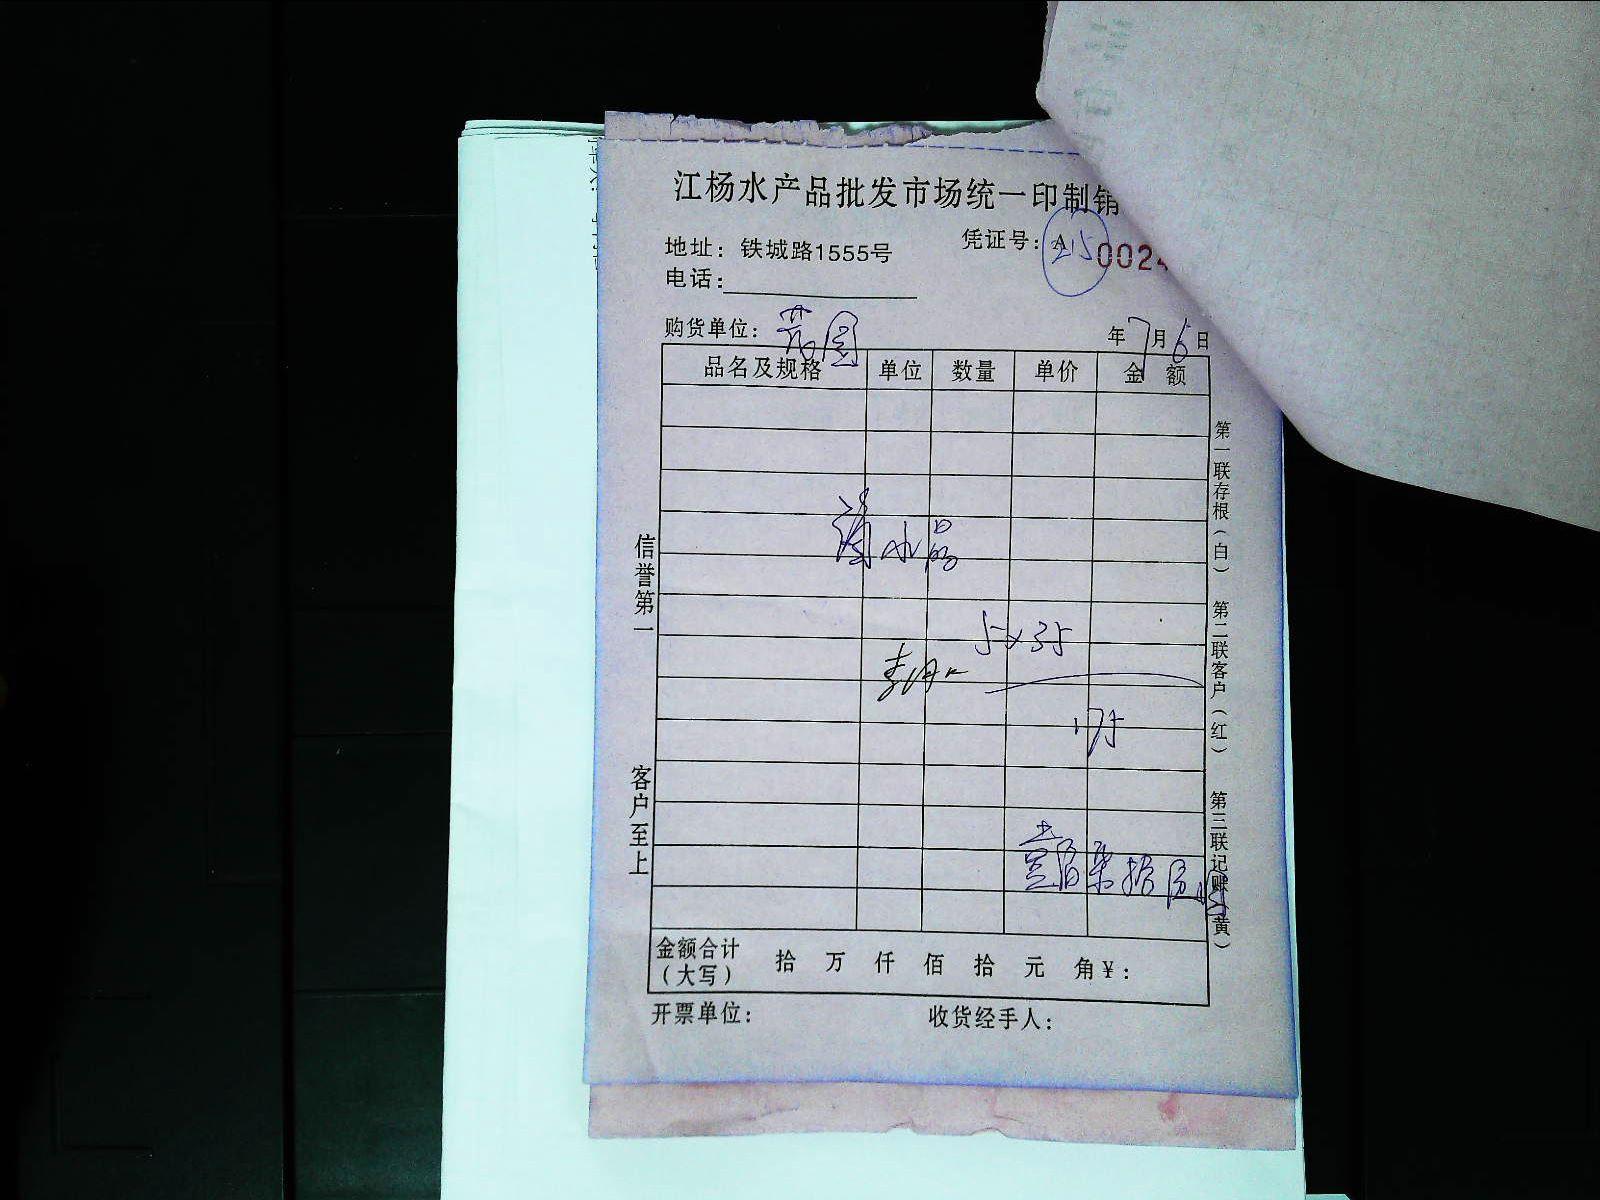 江杨水产品批发市场统一印制销
地址：铁城路1555号
凭证号：A 215 0024
电话：
购货单位：
年7月6日
品名及规格 单位 数量 单价 金额
水晶
5×35
175
壹佰柒拾
金额合计（大写） 拾 万 仟 佰 拾 元 角 ¥：
开票单位：
收货经手人：
信誉第一
客户至上
第一联存根（白） 第二联客户（红） 第三联记账（黄）